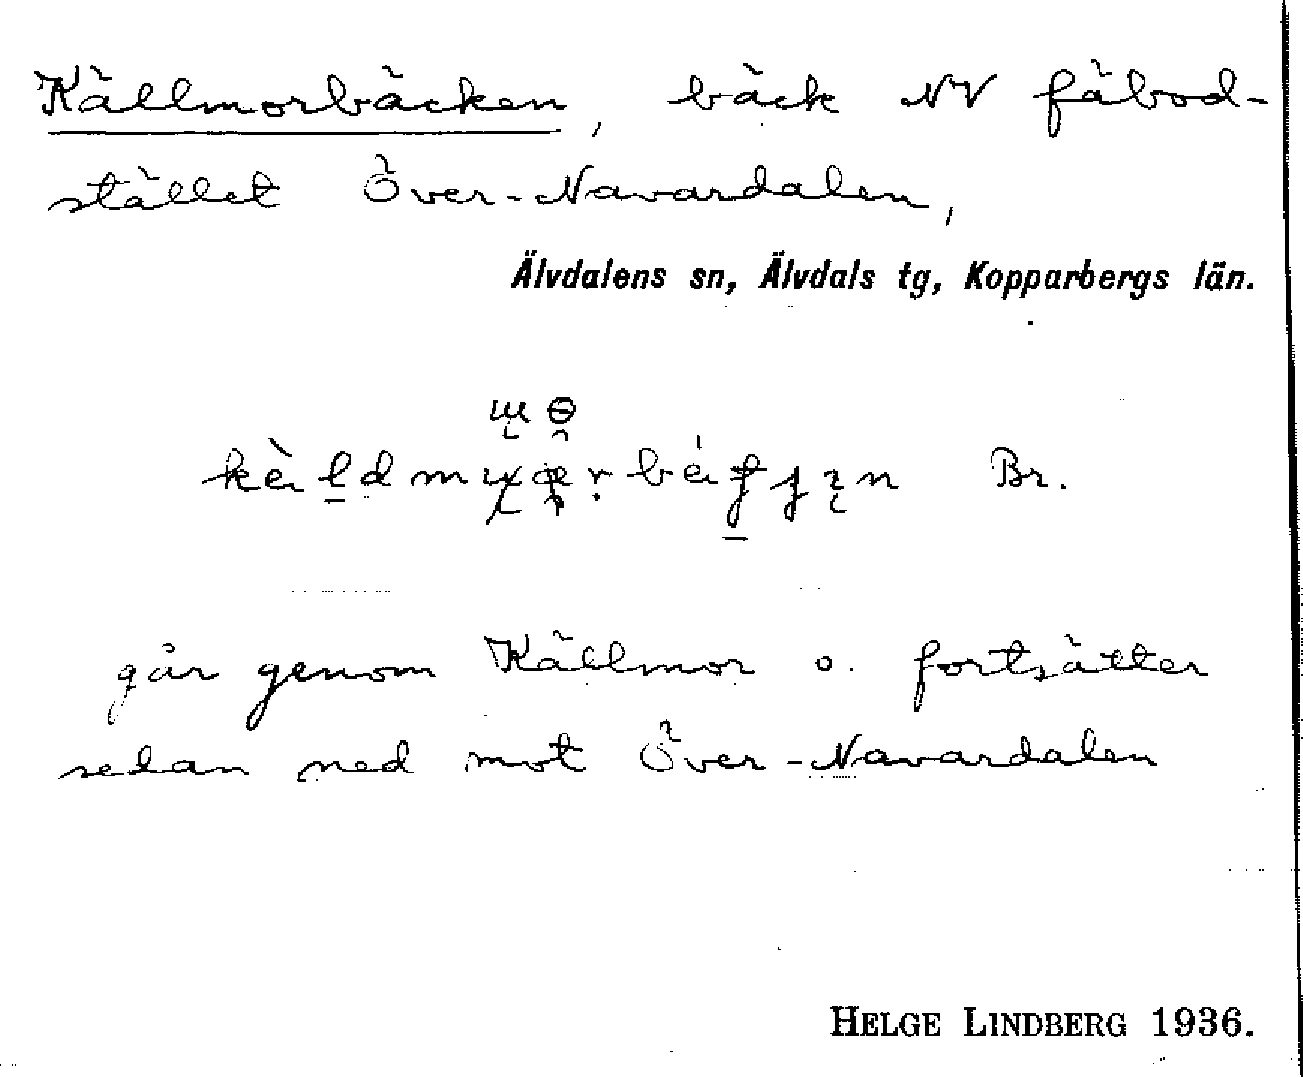 Källmorbäcken, bäck NV fäbod-
stället Över-Navardalen,
Älvdalens sn, Älvdals tg, Kopparbergs län.
Br.
går genom Källmor o. fortsätter
sedan ned mot Över-Navardalen
HELGE LINDBERG 1936.